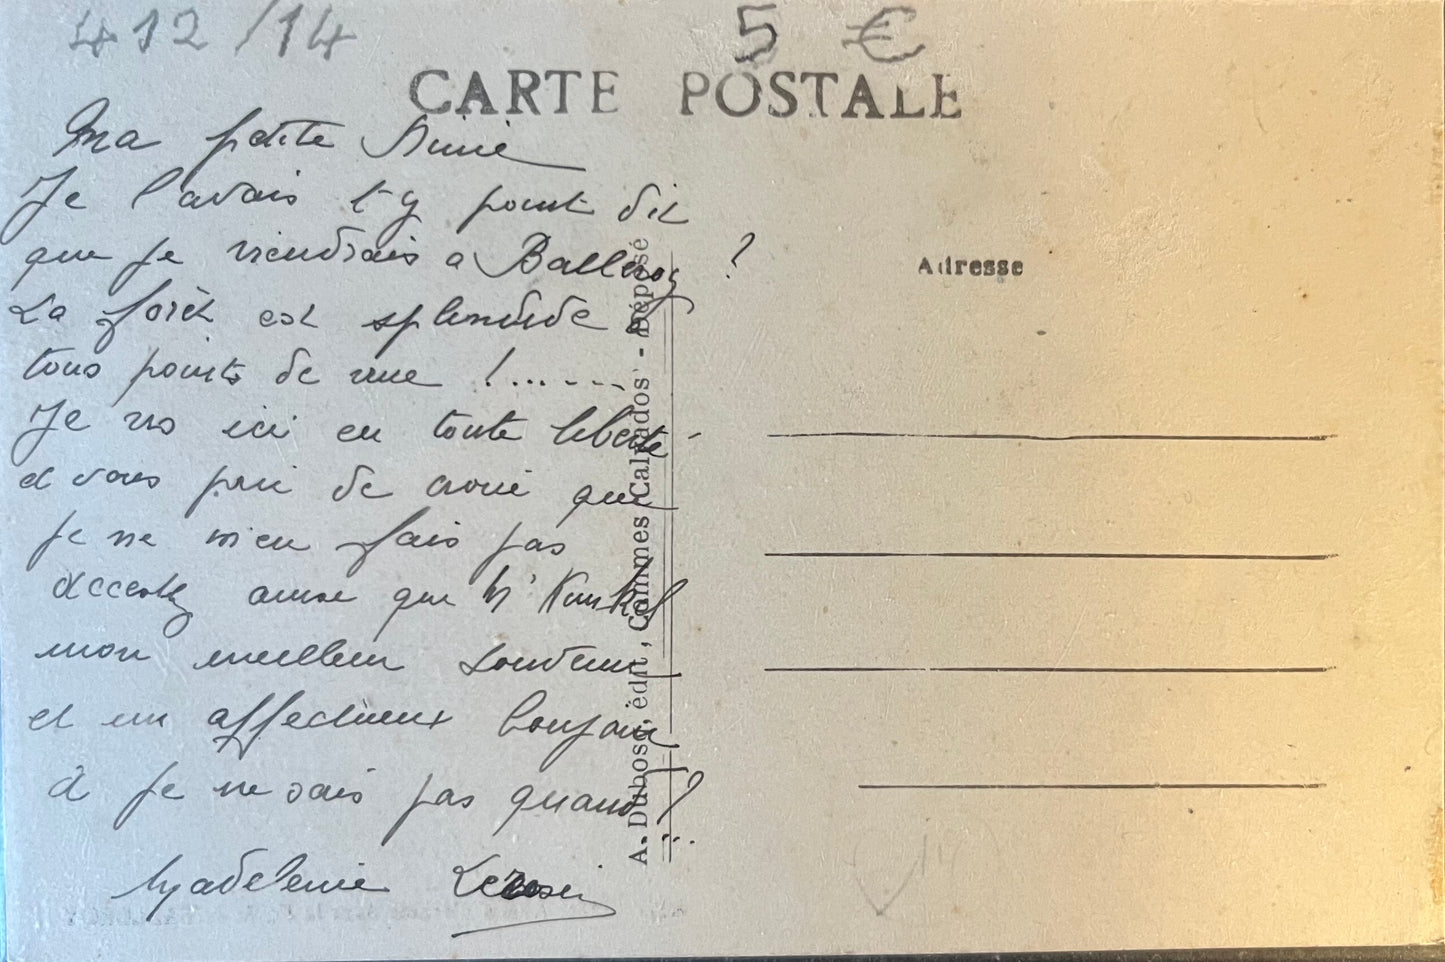 412/14
5 €
CARTE POSTALE
Ma petite Ninie
Je l'avais t-y point dit
que je viendrais a Balleroy ?
La forêt est splendide à
tous points de vue !......
Je vis ici en toute liberté
et vous prie de croire que
je ne m'en fais pas
acceptez ainsi que Mr Kunkel
mon meilleur souvenir
et un affectueux bonjour
à je ne sais pas quand ?
Madeleine
Adresse
A. Dubosc, édit, Commes Calvados - Déposé